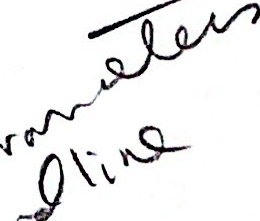 rameters
dline